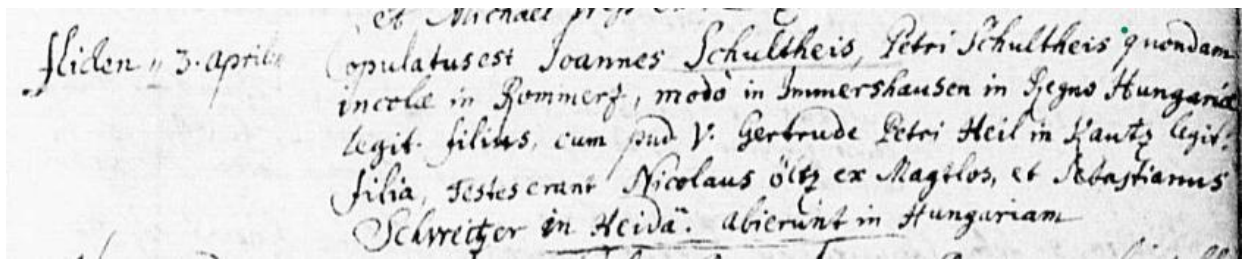 et Michael
Fliden 3. Aprilis Copulatus est Joannes Schultheis, Petri Schultheis quondam
incolæ in Rommerz, modo in Immershausen in Regno Hungariæ
legit. filius, cum pud V. Gertrude Petri Heil in Kautz legit.
filia, Testes erant Nicolaus öltz ex Magtlos, et Sebastianus
Schreitzer in Heidä. abierunt in Hungariam